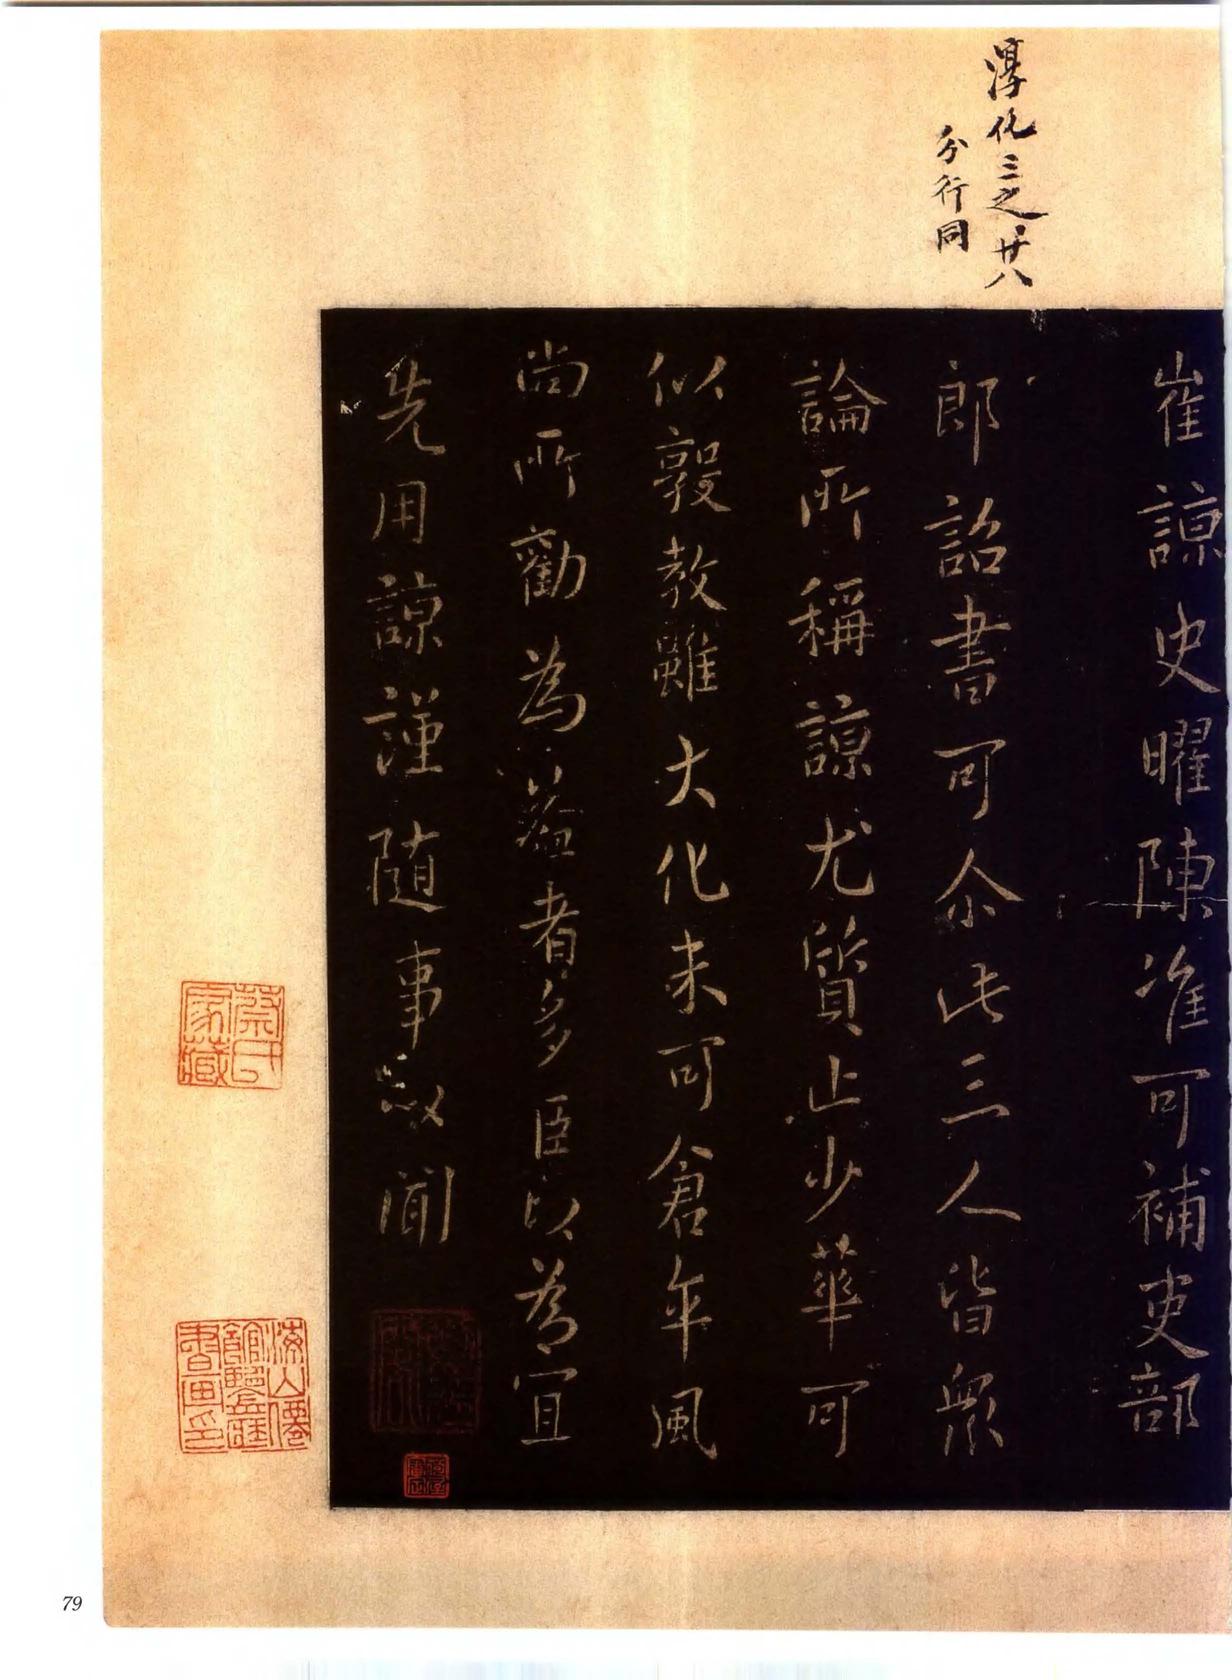 淳化三之廿八
分行同
崔諒史曜陳准可補吏部
郎詔書可尒此三人皆衆
論所稱諒尤質止少華可
以敦教雖大化未可倉卒風
尚所勸為益者多臣以為宜
先用諒謹隨事以聞
蔡氏家藏
海山僊館鑒藏書画印
79